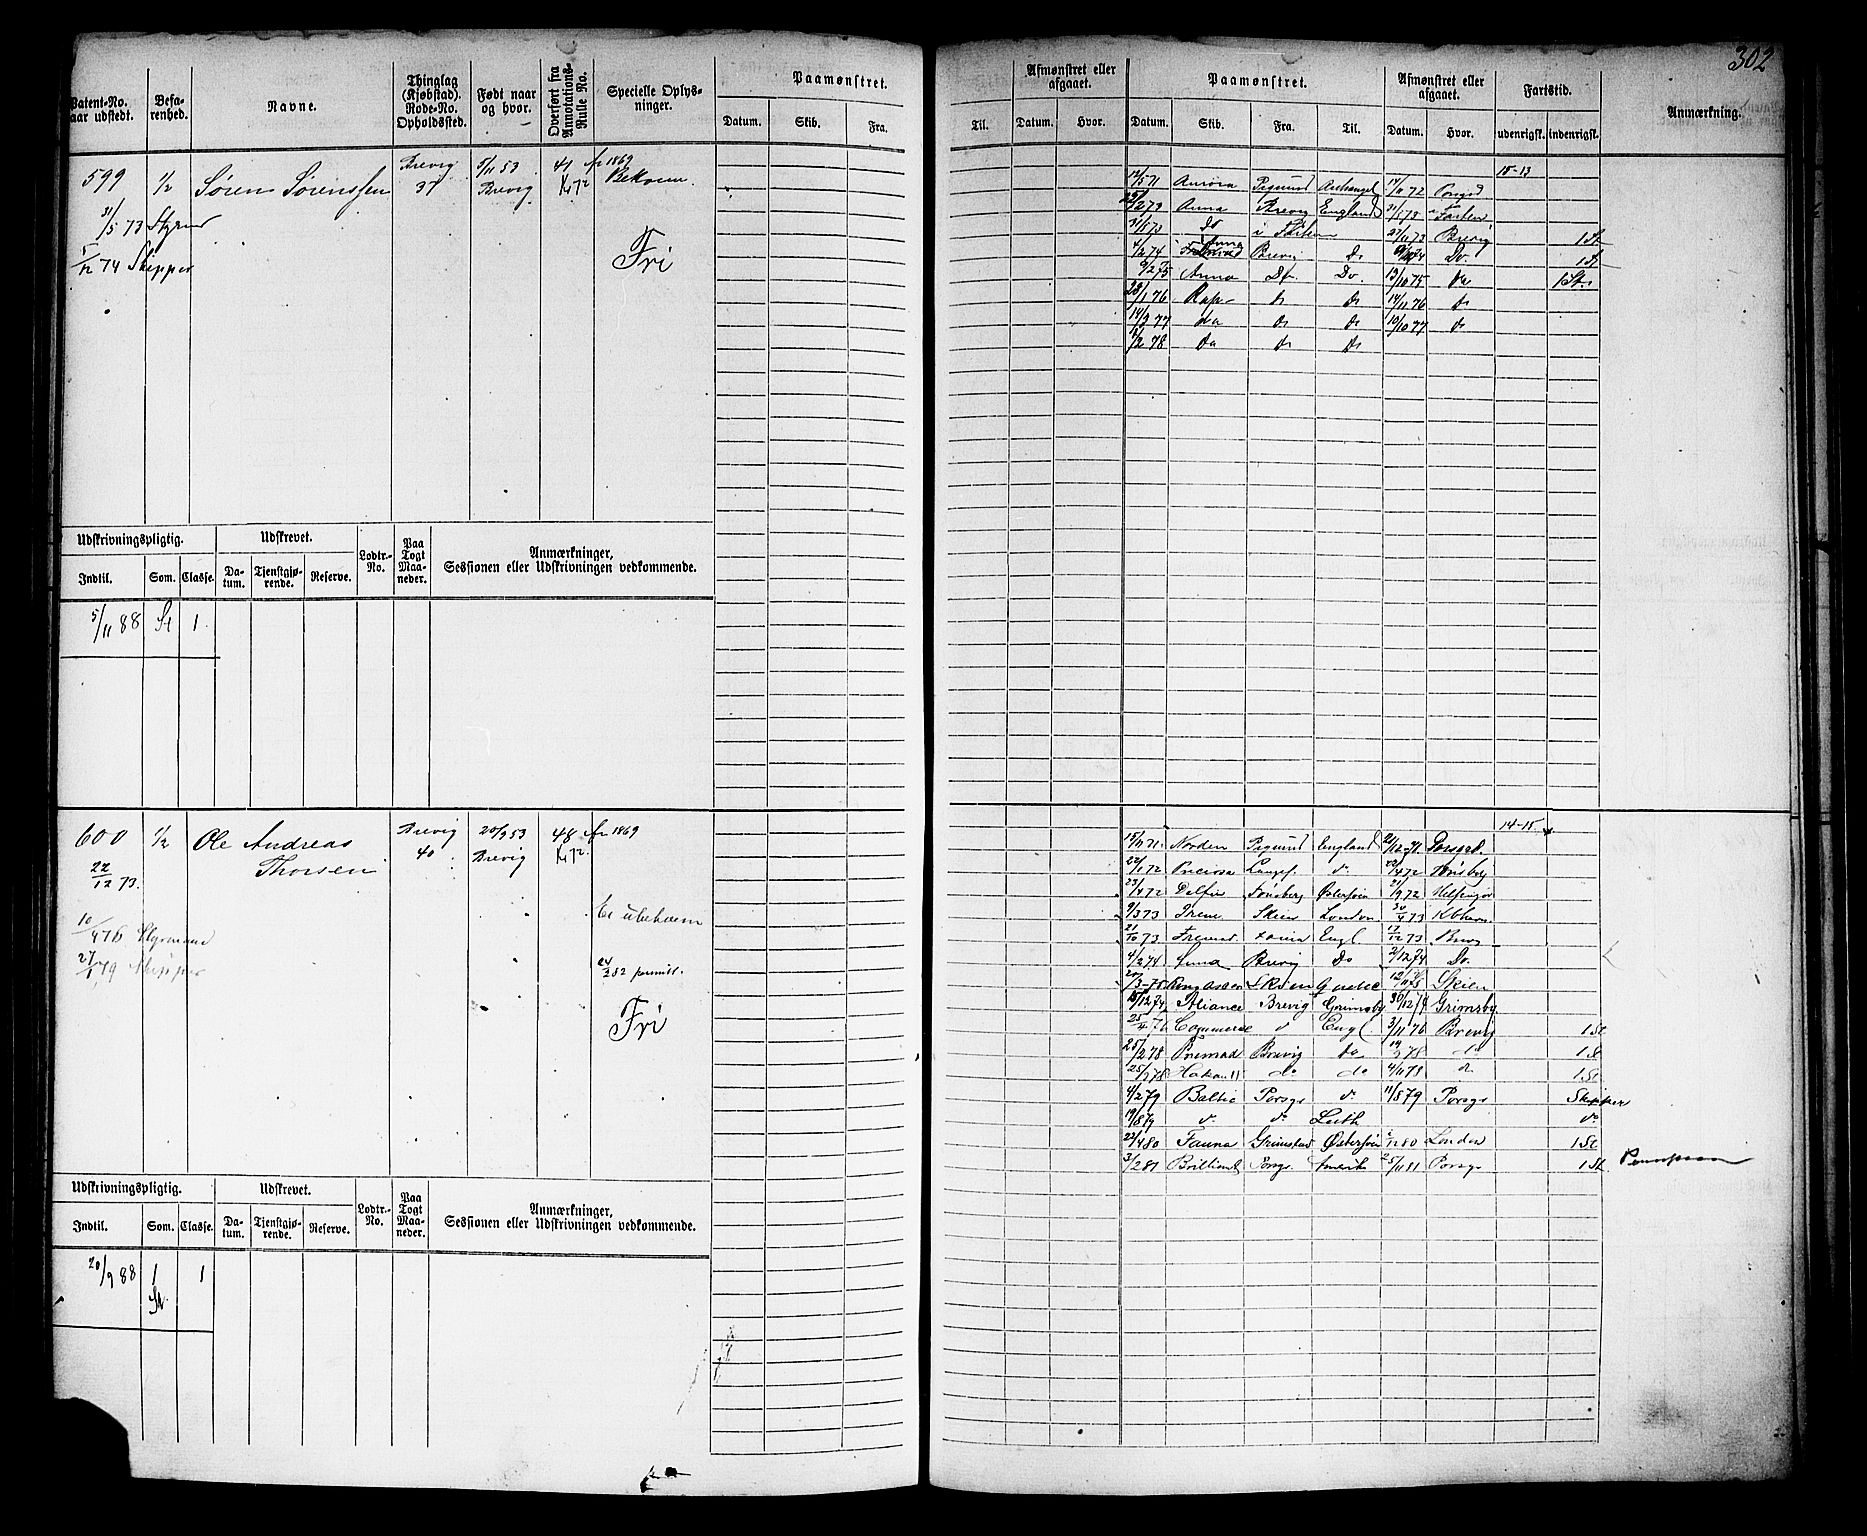 302
Patent-No. aar udstedt.
Befarenhed.
Navne.
Thinglag (Kjøbstad). Rode-No. Opholdssted.
Født naar og hvor.
Overført fra Annotations-Rulle No.
Specielle Oplysninger.
Paamønstret.
Datum. Skib. Fra.
Til.
Afmønstret eller afgaaet.
Datum. Hvor.
Paamønstret.
Datum. Skib. Fra. Til.
Afmønstret eller afgaaet.
Datum. Hvor.
Fartstid.
udenrigsk. indenrigsk.
Anmærkning.
599 1/2 Søren Sørenssen Brevig 37 5/11 53 Brevig 41 fr 1869
31/5 73 Styrm
5/12 74 Skipper
Fri
15-13
12/5 71 Aurora Archangel 14/11 72
Anna Brevig England 31/5 73
31/5 73 Do i 27/11 73 Brevig 1 St
4/2 74 Anna Brevi Do Do. 1 St
9/2 75 Anna Do Do. 13/10 75 Do 1 St.
28/1 76 Rap do do 14/11 76 do
14/3 77 do do do 10/10 77 do
7/2 78 do do do
Udskrivningspligtig.
Udskrevet.
Lodtr.-No.
Paa Togt Maaneder.
Anmærkninger, Sessionen eller Udskrivningen vedkommende.
Indtil. Som. Classe. Datum. Tjenstgjørende. Reserve.
5/11 88 St 1.
600 1/2 Ole Andreas Thorsen Brevig 40 20/9 53 Brevig 48 fr 1869
22/12 73.
10/4 76 Styrmand
27/1 79 Skipper
Er ubekvem
24/2 82 permitt.
Fri
14-15
15/11 71. Norden England 21/12 71
22/1 72 Preciosa Langes. do 22/4 72 Tønsberg
23/4 72 Delfin Tønsberg Østersøen 21/9 72 Helsingør
9/3 73 Irene Skien London 30/4 73 Kbhavn
21/10 73 Fremad Engl. 17/12 73 Brevig
4/2 74 Brevig Do 2/12 74 Do.
20/3 75 Skien 12/11 75 Skien
15/12 74 Aliance Brevig Grimsby 30/12 74 Grimsby
25/4 76 Commerce do Engl 3/11 76 Brevig 1 St
25/2 78 Fremad Brevig do 19/9 78 do 1 St
25/9 78 Hakon II do do 4/11 78 do 1 St
4/2 79 Baltic Porsgr do 11/8 79 Porsgr Skipper
19/8 79 do do Leith do
22/4 80 Fauna Grimstad Østersøen London 1 St
3/2 81 Brilliant Porsgr. Amerik 25/11 81 Porsgr 1 St.
Udskrivningspligtig.
Udskrevet.
Lodtr.-No.
Paa Togt Maaneder.
Anmærkninger, Sessionen eller Udskrivningen vedkommende.
Indtil. Som. Classe. Datum. Tjenstgjørende. Reserve.
20/9 88 1 St 1